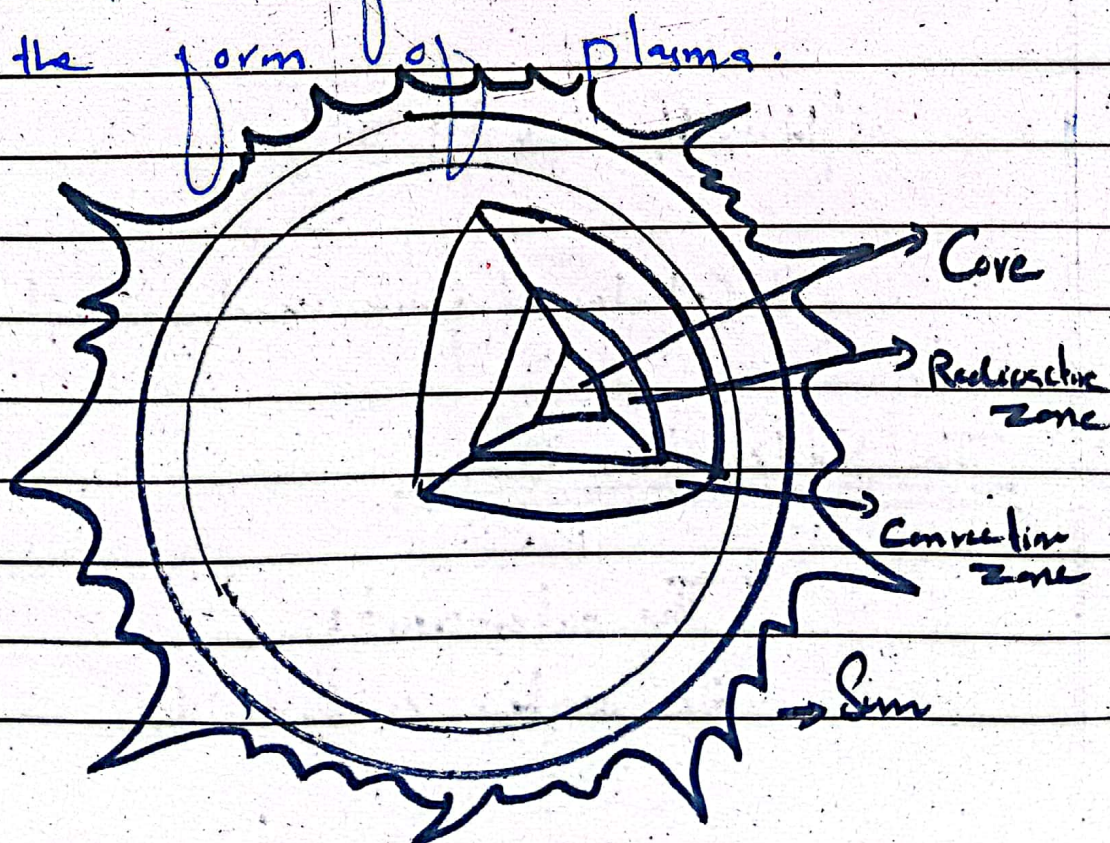 the form of plasma.
Core
Radioactive
zone
Convection
zone
→ Sun